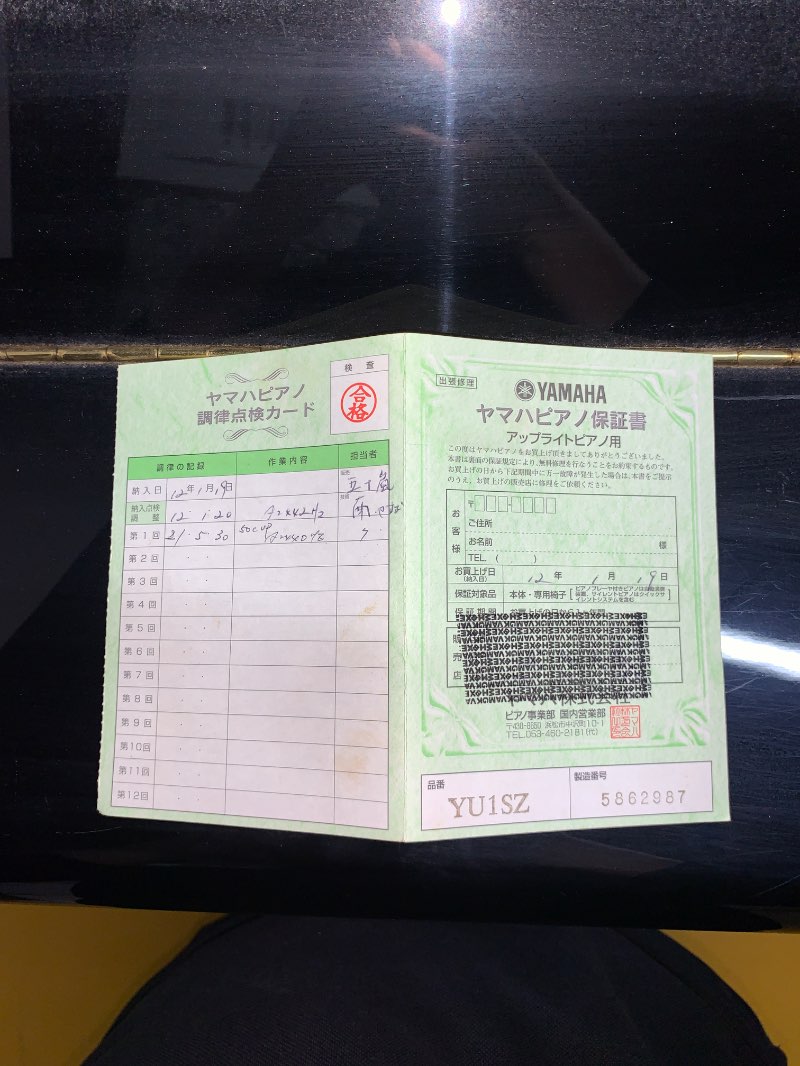 ヤマハピアノ
調律点検カード
検 査
合格
調律の記録 作業内容 担当者
納入日 12年1月19日 五十嵐
納入点検
調整 12・1・20 A=442Hz
第1回 21・5・30
第2回 ・ ・
第3回 ・ ・
第4回 ・ ・
第5回 ・ ・
第6回 ・ ・
第7回 ・ ・
第8回 ・ ・
第9回 ・ ・
第10回 ・ ・
第11回 ・ ・
第12回 ・ ・
出張修理
YAMAHA
ヤマハピアノ保証書
アップライトピアノ用
この度はヤマハピアノをお買上げ頂きましてありがとうございました。
本書は裏面の保証規定により、無料修理を行なうことをお約束するものです。
お買上げの日から下記期間中に万一故障が発生した場合は、本書をご提示
のうえ、お買上げの販売店に修理をご依頼ください。
お客様
〒
ご住所
お名前 様
TEL. ( )
お買上げ日
(納入日) 12 年 1 月 19 日
保証対象品 本体・専用椅子
保証期間 お買上げの日から
販売店
ピアノ事業部 国内営業部
〒430-8650 浜松市中沢町10-1
TEL.053-460-2181(代)
品番
YU1SZ
製造番号
5862987